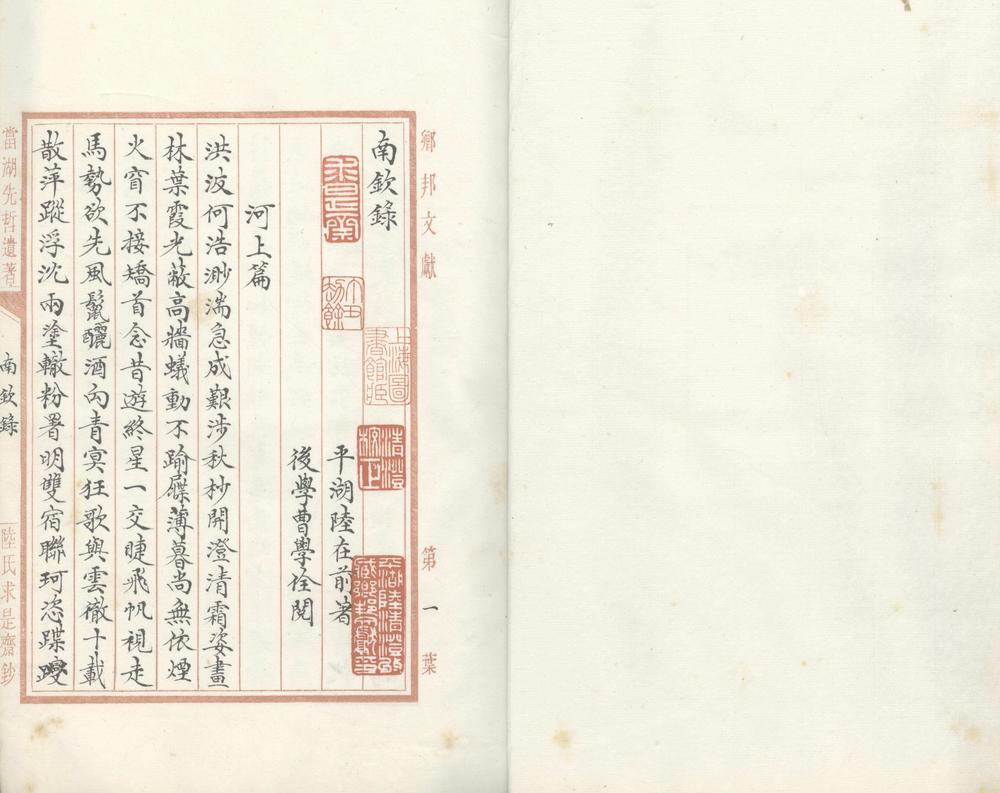 鄉邦文獻
第一葉
南欽錄
平湖陸在前著
後學曹學佺閱
河上篇
洪波何浩渺湍急成艱涉秋杪開澄清霜姿畫
林葉霞光蔽高牆蟻動不踰屧薄暮尚無依煙
火窅不接矯首念昔遊終星一交睫飛帆視走
馬勢欲先風鬣釃酒向青冥狂歌與雲徹十載
散萍蹤浮沈兩塗轍粉署明雙宿聯珂恣蹀躞
當湖先哲遺著
南欽錄
陸氏求是齋鈔
求是齋
劫餘
上海圖書館臧
清澄校正
平湖陸清澄